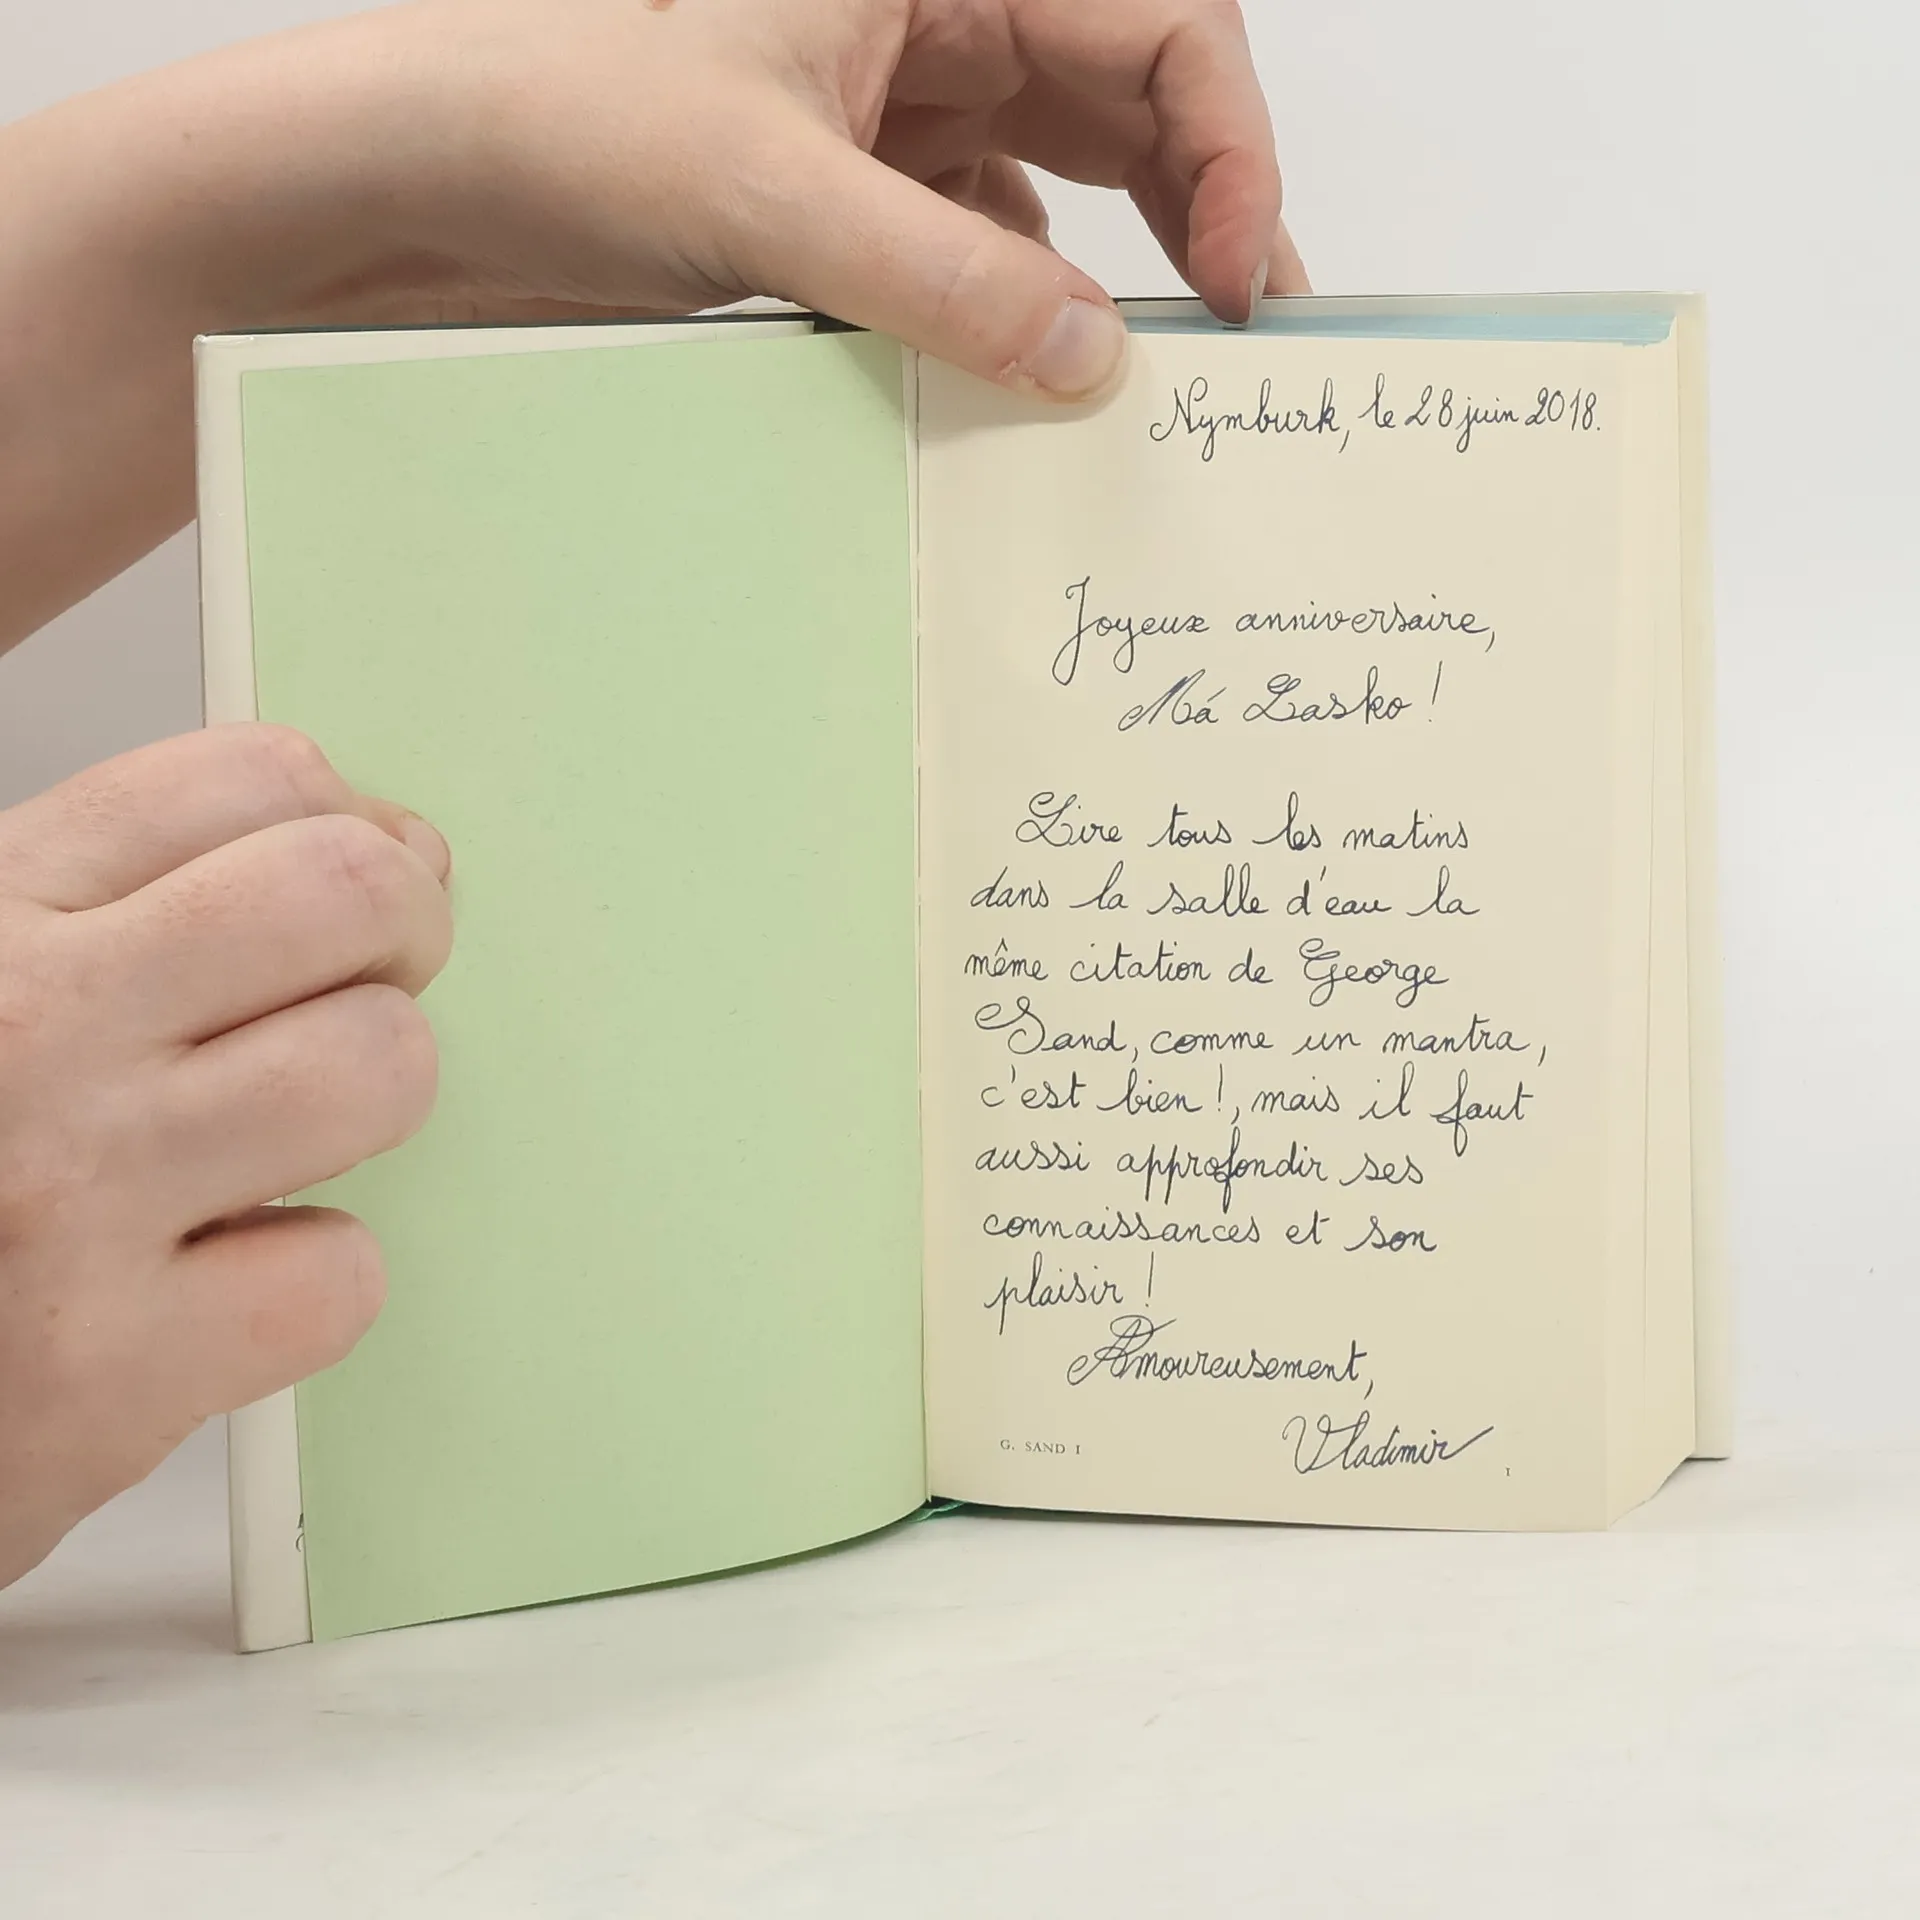 Nymburk, le 28 juin 2018.
Joyeux anniversaire,
Má Lasko !
Lire tous les matins
dans la salle d'eau la
même citation de George
Sand, comme un mantra,
c'est bien !, mais il faut
aussi approfondir ses
connaissances et son
plaisir !
Amoureusement,
Vladimir
G. SAND I
1